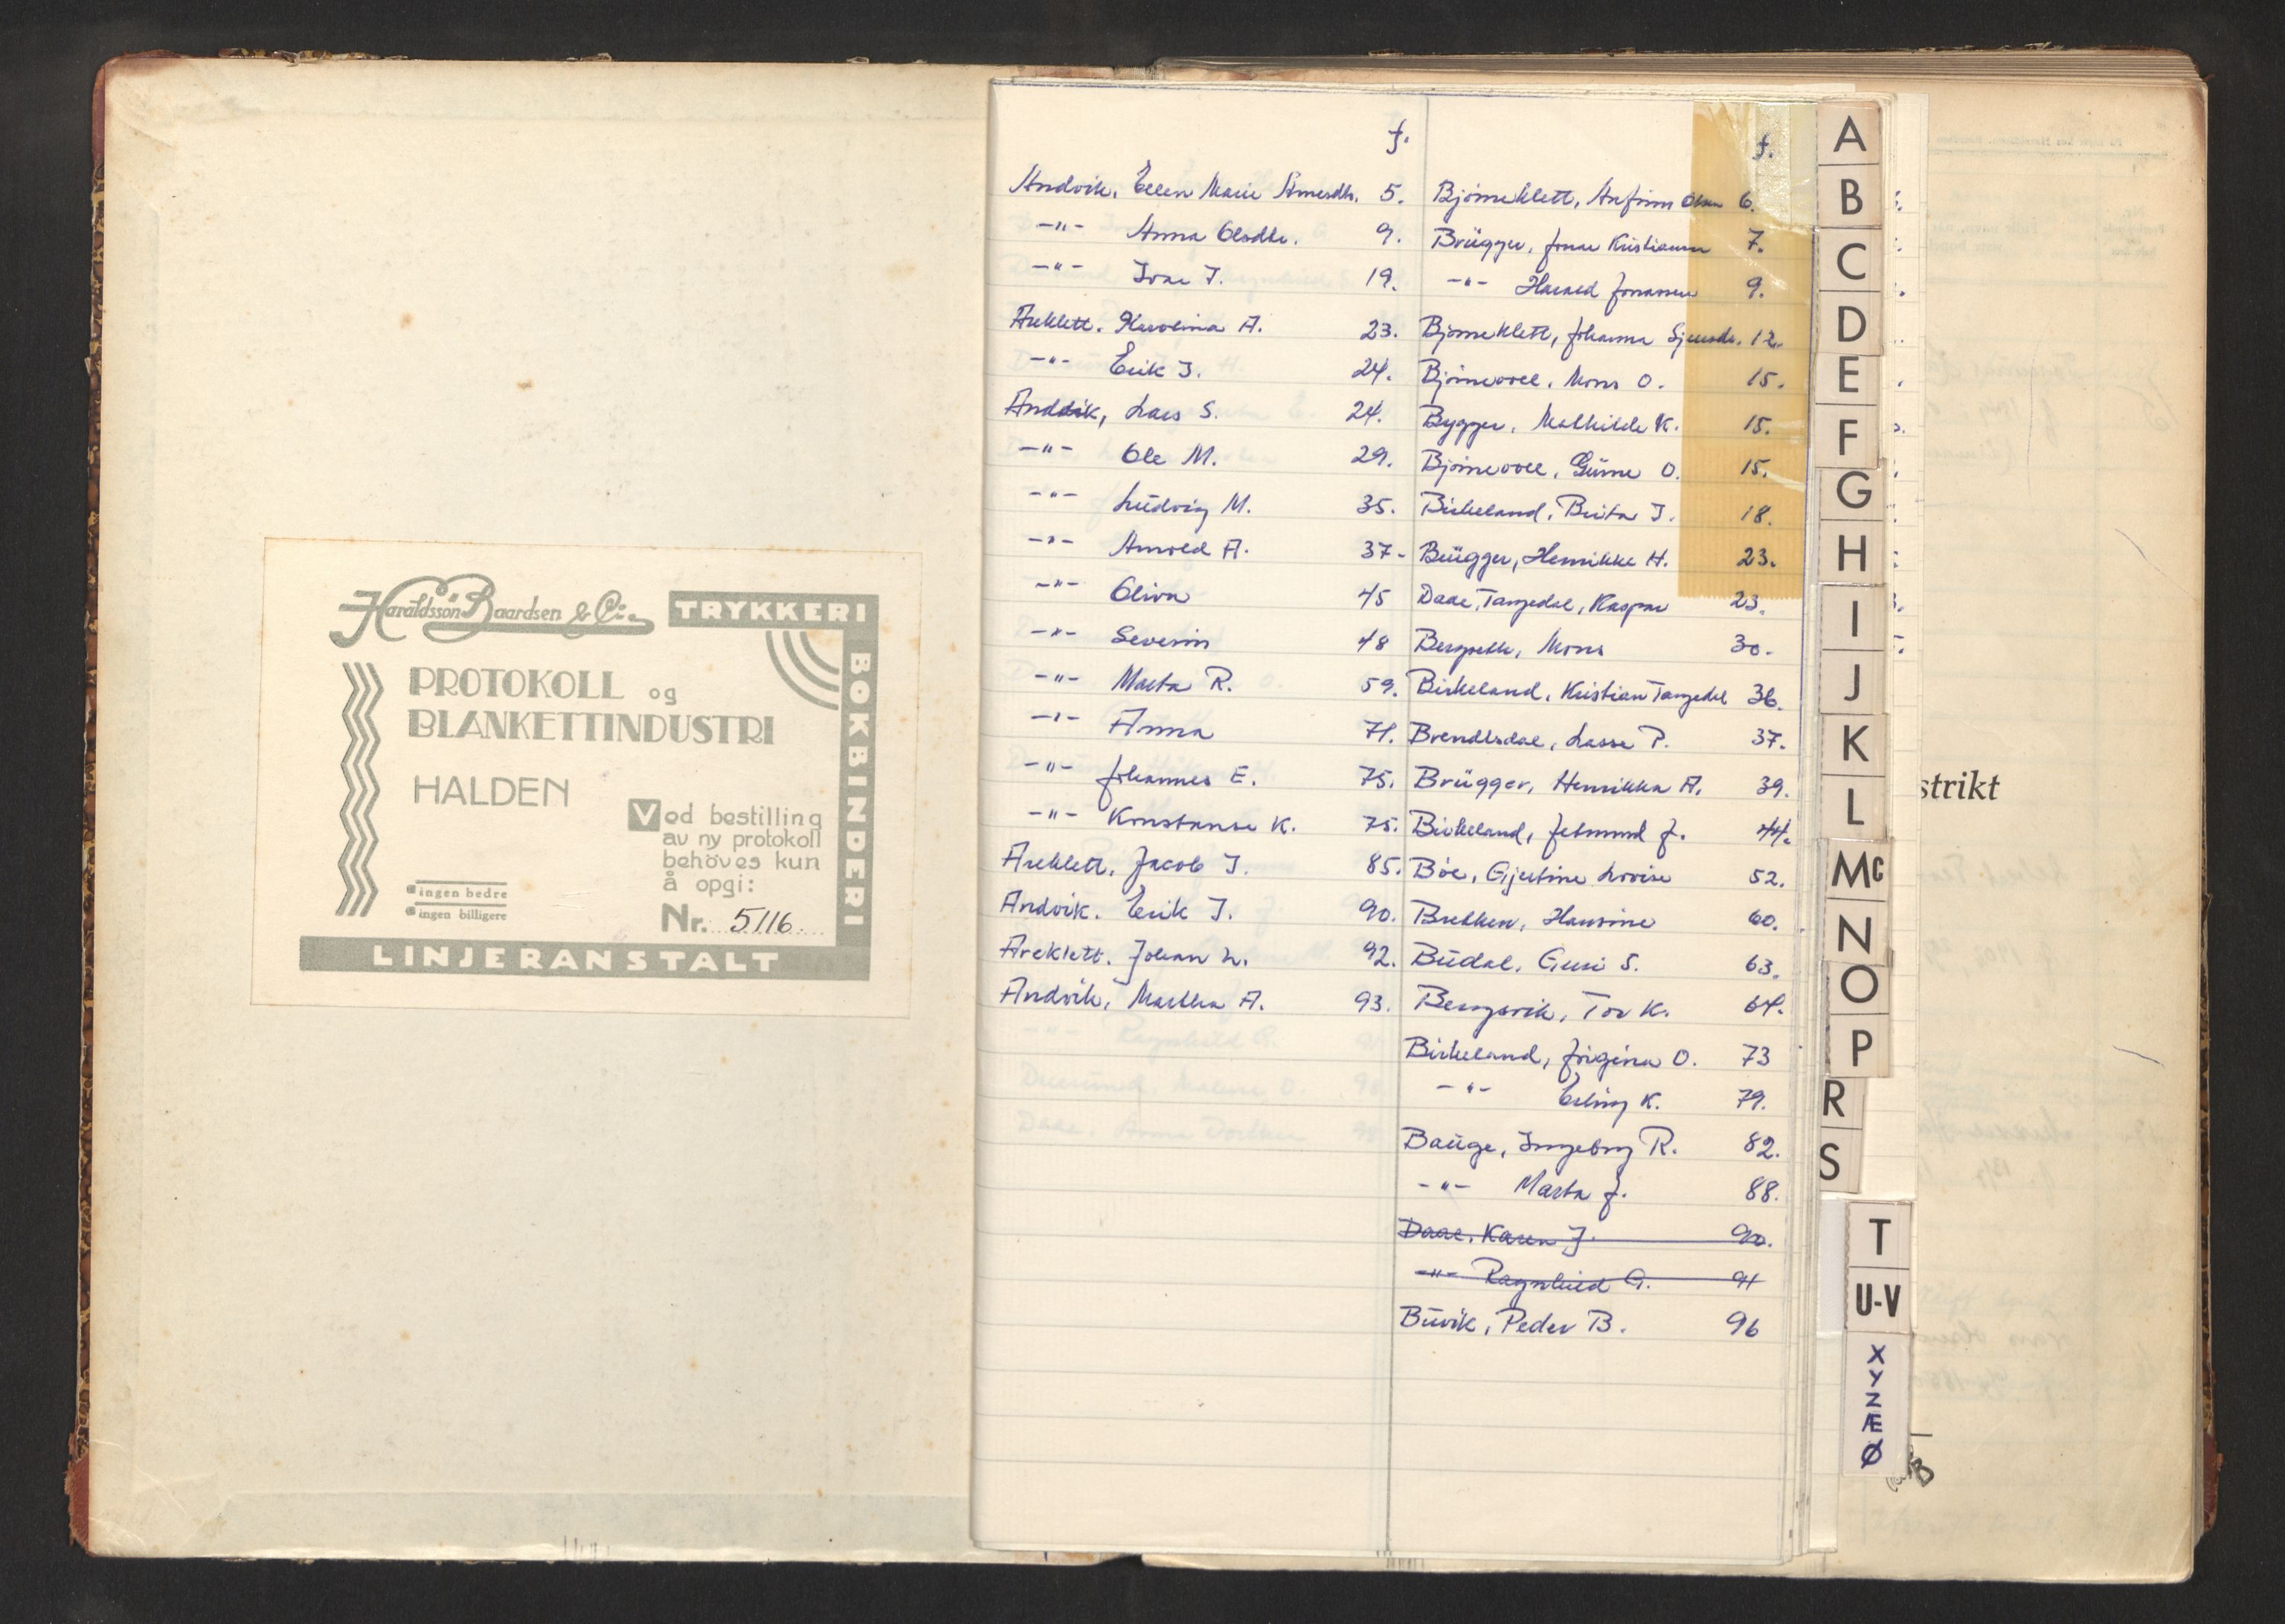 Haraldsson Baardsen & Co.
TRYKKERI
BOKBINDERI
LINJERANSTALT
PROTOKOLL og
BLANKETTINDUSTRI
HALDEN
Ved bestilling
av ny protokoll
behöves kun
å opgi:
Nr. 5116
ingen bedre
ingen billigere
f.
Andvik, Ellen Marie 5.
-"- Anna Olsdtr. 9.
-"- Ivar I. 19.
Areklett. Karolina A. 23.
-"- Erik I. 24.
Andvik, Lars S. 24.
-"- Ole M. 29.
-"- Ludvig M. 35.
-"- Arnold A. 37-
-"- Oliva 45
-"- Severin 48
-"- Marta R. 59.
-"- Anna 71.
-"- Johannes E. 75.
-"- Konstanse K. 75.
Areklett. Jacob I. 85.
Andvik. Erik I. 90.
Areklett. Johan L. 92.
Andvik, Martha A. 93.
f.
Bjørneklett, Anfinn Olsen 6.
Brügger, Jonas Kristiansen 7.
-"- Harald Jonassen 9.
Bjørneklett, Johanna 12.
Bjørnevoll, Mons O. 15.
Bygger, Mathilde K. 15.
Bjørnevoll, O. 15.
Birkeland, Brita I. 18.
Brügger, Henrikke H. 23.
Daae, Tangedal, Kaspar 23.
Mons 30.
Birkeland, Kristian Tangedal 36.
Brendlsdal, Lasse P. 37.
Brügger, Henrikka A. 39.
Birkeland, Jetmund J. 44.
Bøe, Gjertine Lovise 52.
Brekken, Hansine 60.
Būdal, Guri S. 63.
Bergsvik, Tor K. 64.
Birkeland, Jørgina O. 73
-"- Erling K. 79.
Baūge, Ingeborg R. 82.
-"- Marta J. 88.
Daae, Karen J. 90.
-"- Ragnhild G. 91
Būvik, Peder B. 96
A
B
C
D
E
F
G
H
I
J
K
L
Mc
N
O
P
R
S
T
U-V
X
Y
Z
Æ
Ø
strikt
B